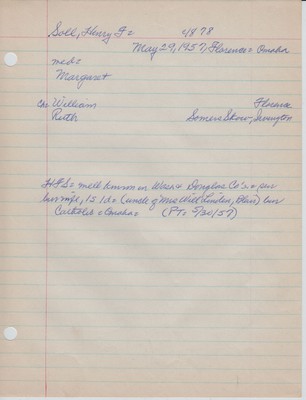 Soll, Henry F = 4878
May 29, 1957, Florence = Omaha
md =
Margaret
ch: William Florence
Ruth Somers Skow - Irvington
HFS = well known in Wash & Douglas Co's = sur
1 s 1 d = (uncle of Mrs Will Linden, Blair) bur
Omaha = (PT = 5/30/57)